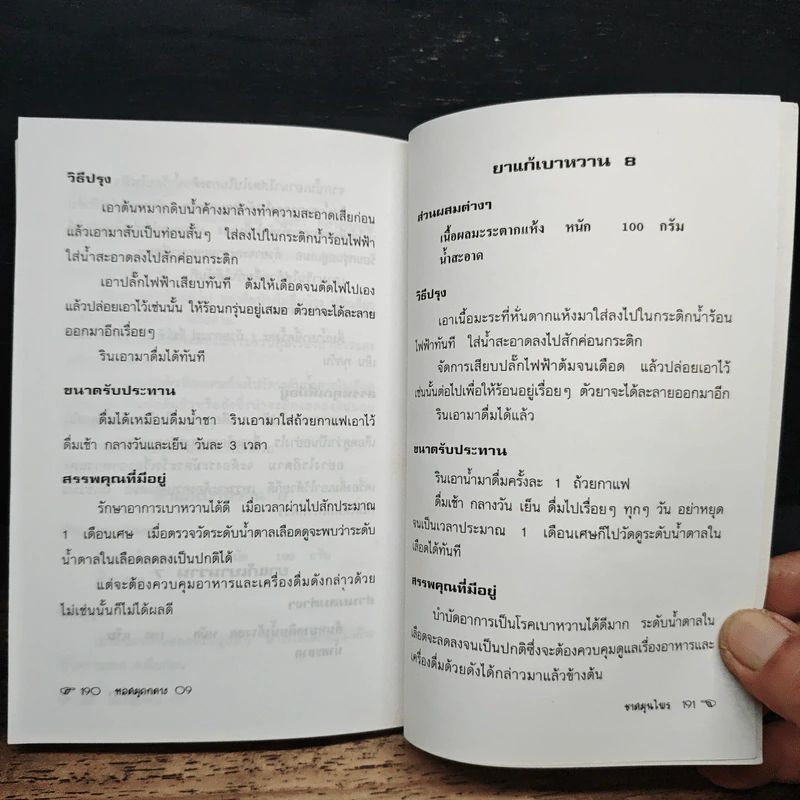 วิธีปรุง
เอาต้นหมากดิบน้ำค้างมาล้างทำความสะอาดเสียก่อน
แล้วเอามาสับเป็นท่อนสั้นๆ ใส่ลงไปในกระติกน้ำร้อนไฟฟ้า
ใส่น้ำสะอาดลงไปสักค่อนกระติก
เอาปลั๊กไฟฟ้าเสียบทันที ต้มให้เดือดจนตัดไฟไปเอง
แล้วปล่อยเอาไว้เช่นนั้น ให้ร้อนกรุ่นอยู่เสมอ ตัวยาจะได้ละลาย
ออกมาอีกเรื่อยๆ
รินเอามาดื่มได้ทันที
ขนาดรับประทาน
ดื่มได้เหมือนดื่มน้ำชา รินเอามาใส่ถ้วยกาแฟเอาไว้
ดื่มเช้า กลางวันและเย็น วันละ 3 เวลา
สรรพคุณที่มีอยู่
รักษาอาการเบาหวานได้ดี เมื่อเวลาผ่านไปสักประมาณ
1 เดือนเศษ เมื่อตรวจวัดระดับน้ำตาลเลือดดูจะพบว่าระดับ
น้ำตาลในเลือดลดลงเป็นปกติได้
แต่จะต้องควบคุมอาหารและเครื่องดื่มดังกล่าวด้วย
ไม่เช่นนั้นก็ไม่ได้ผลดี
190 ทอดผุดกลาง 09
ยาแก้เบาหวาน 8
ส่วนผสมต่างๆ
เนื้อผลมะระตากแห้ง หนัก 100 กรัม
น้ำสะอาด
วิธีปรุง
เอาเนื้อมะระที่หั่นตากแห้งมาใส่ลงไปในกระติกน้ำร้อน
ไฟฟ้าทันที ใส่น้ำสะอาดลงไปสักค่อนกระติก
จัดการเสียบปลั๊กไฟฟ้าต้มจนเดือด แล้วปล่อยเอาไว้
เช่นนั้นต่อไปเพื่อให้ร้อนอยู่เรื่อยๆ ตัวยาจะได้ละลายออกมาอีก
รินเอามาดื่มได้แล้ว
ขนาดรับประทาน
รินเอาน้ำมาดื่มครั้งละ 1 ถ้วยกาแฟ
ดื่มเช้า กลางวัน เย็น ดื่มไปเรื่อยๆ ทุกๆ วัน อย่าหยุด
จนเป็นเวลาประมาณ 1 เดือนเศษก็ไปวัดดูระดับน้ำตาลใน
เลือดได้ทันที
สรรพคุณที่มีอยู่
บำบัดอาการเป็นโรคเบาหวานได้ดีมาก ระดับน้ำตาลใน
เลือดจะลดลงจนเป็นปกติซึ่งจะต้องควบคุมดูแลเรื่องอาหารและ
เครื่องดื่มด้วยดังได้กล่าวมาแล้วข้างต้น
191